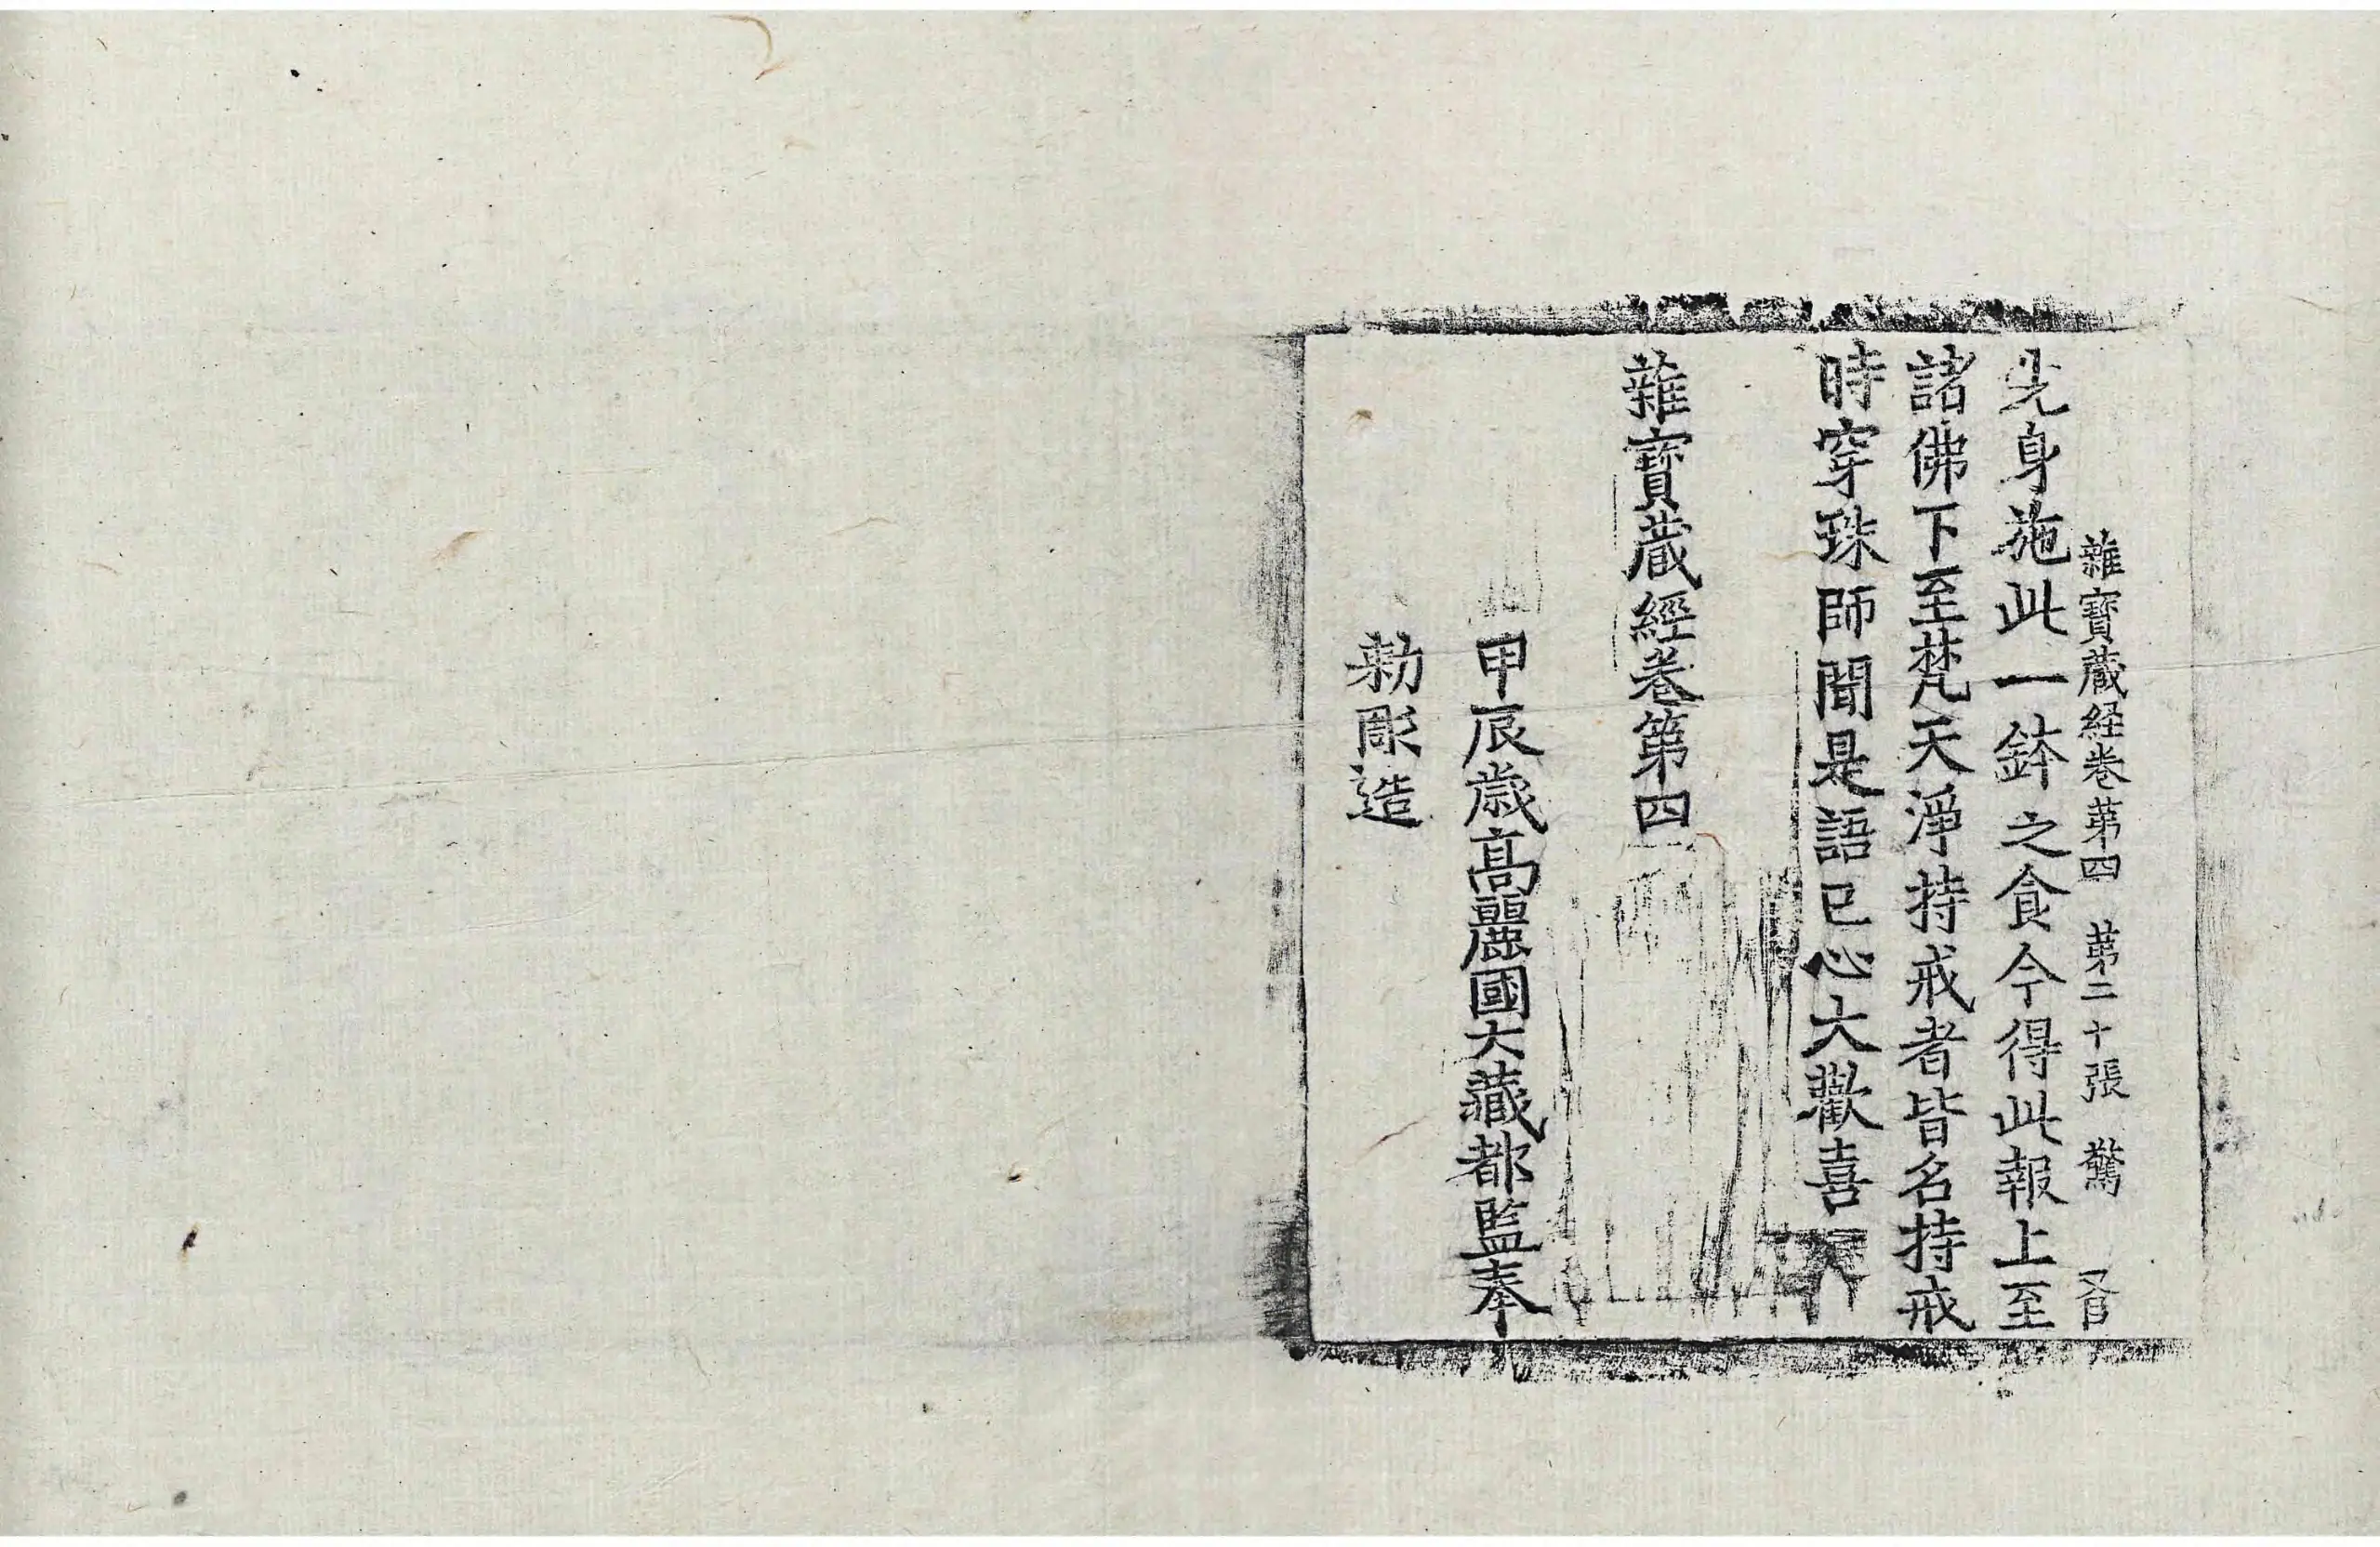 雜寶藏経卷苐四　苐二十張　驚
先身施此一鉢之食今得此報上至
諸佛下至梵天淨持戒者皆名持戒
時穿珠師聞是語已心大歡喜
雜寶藏經卷第四
甲辰歲高麗國大藏都監奉
勅彫造